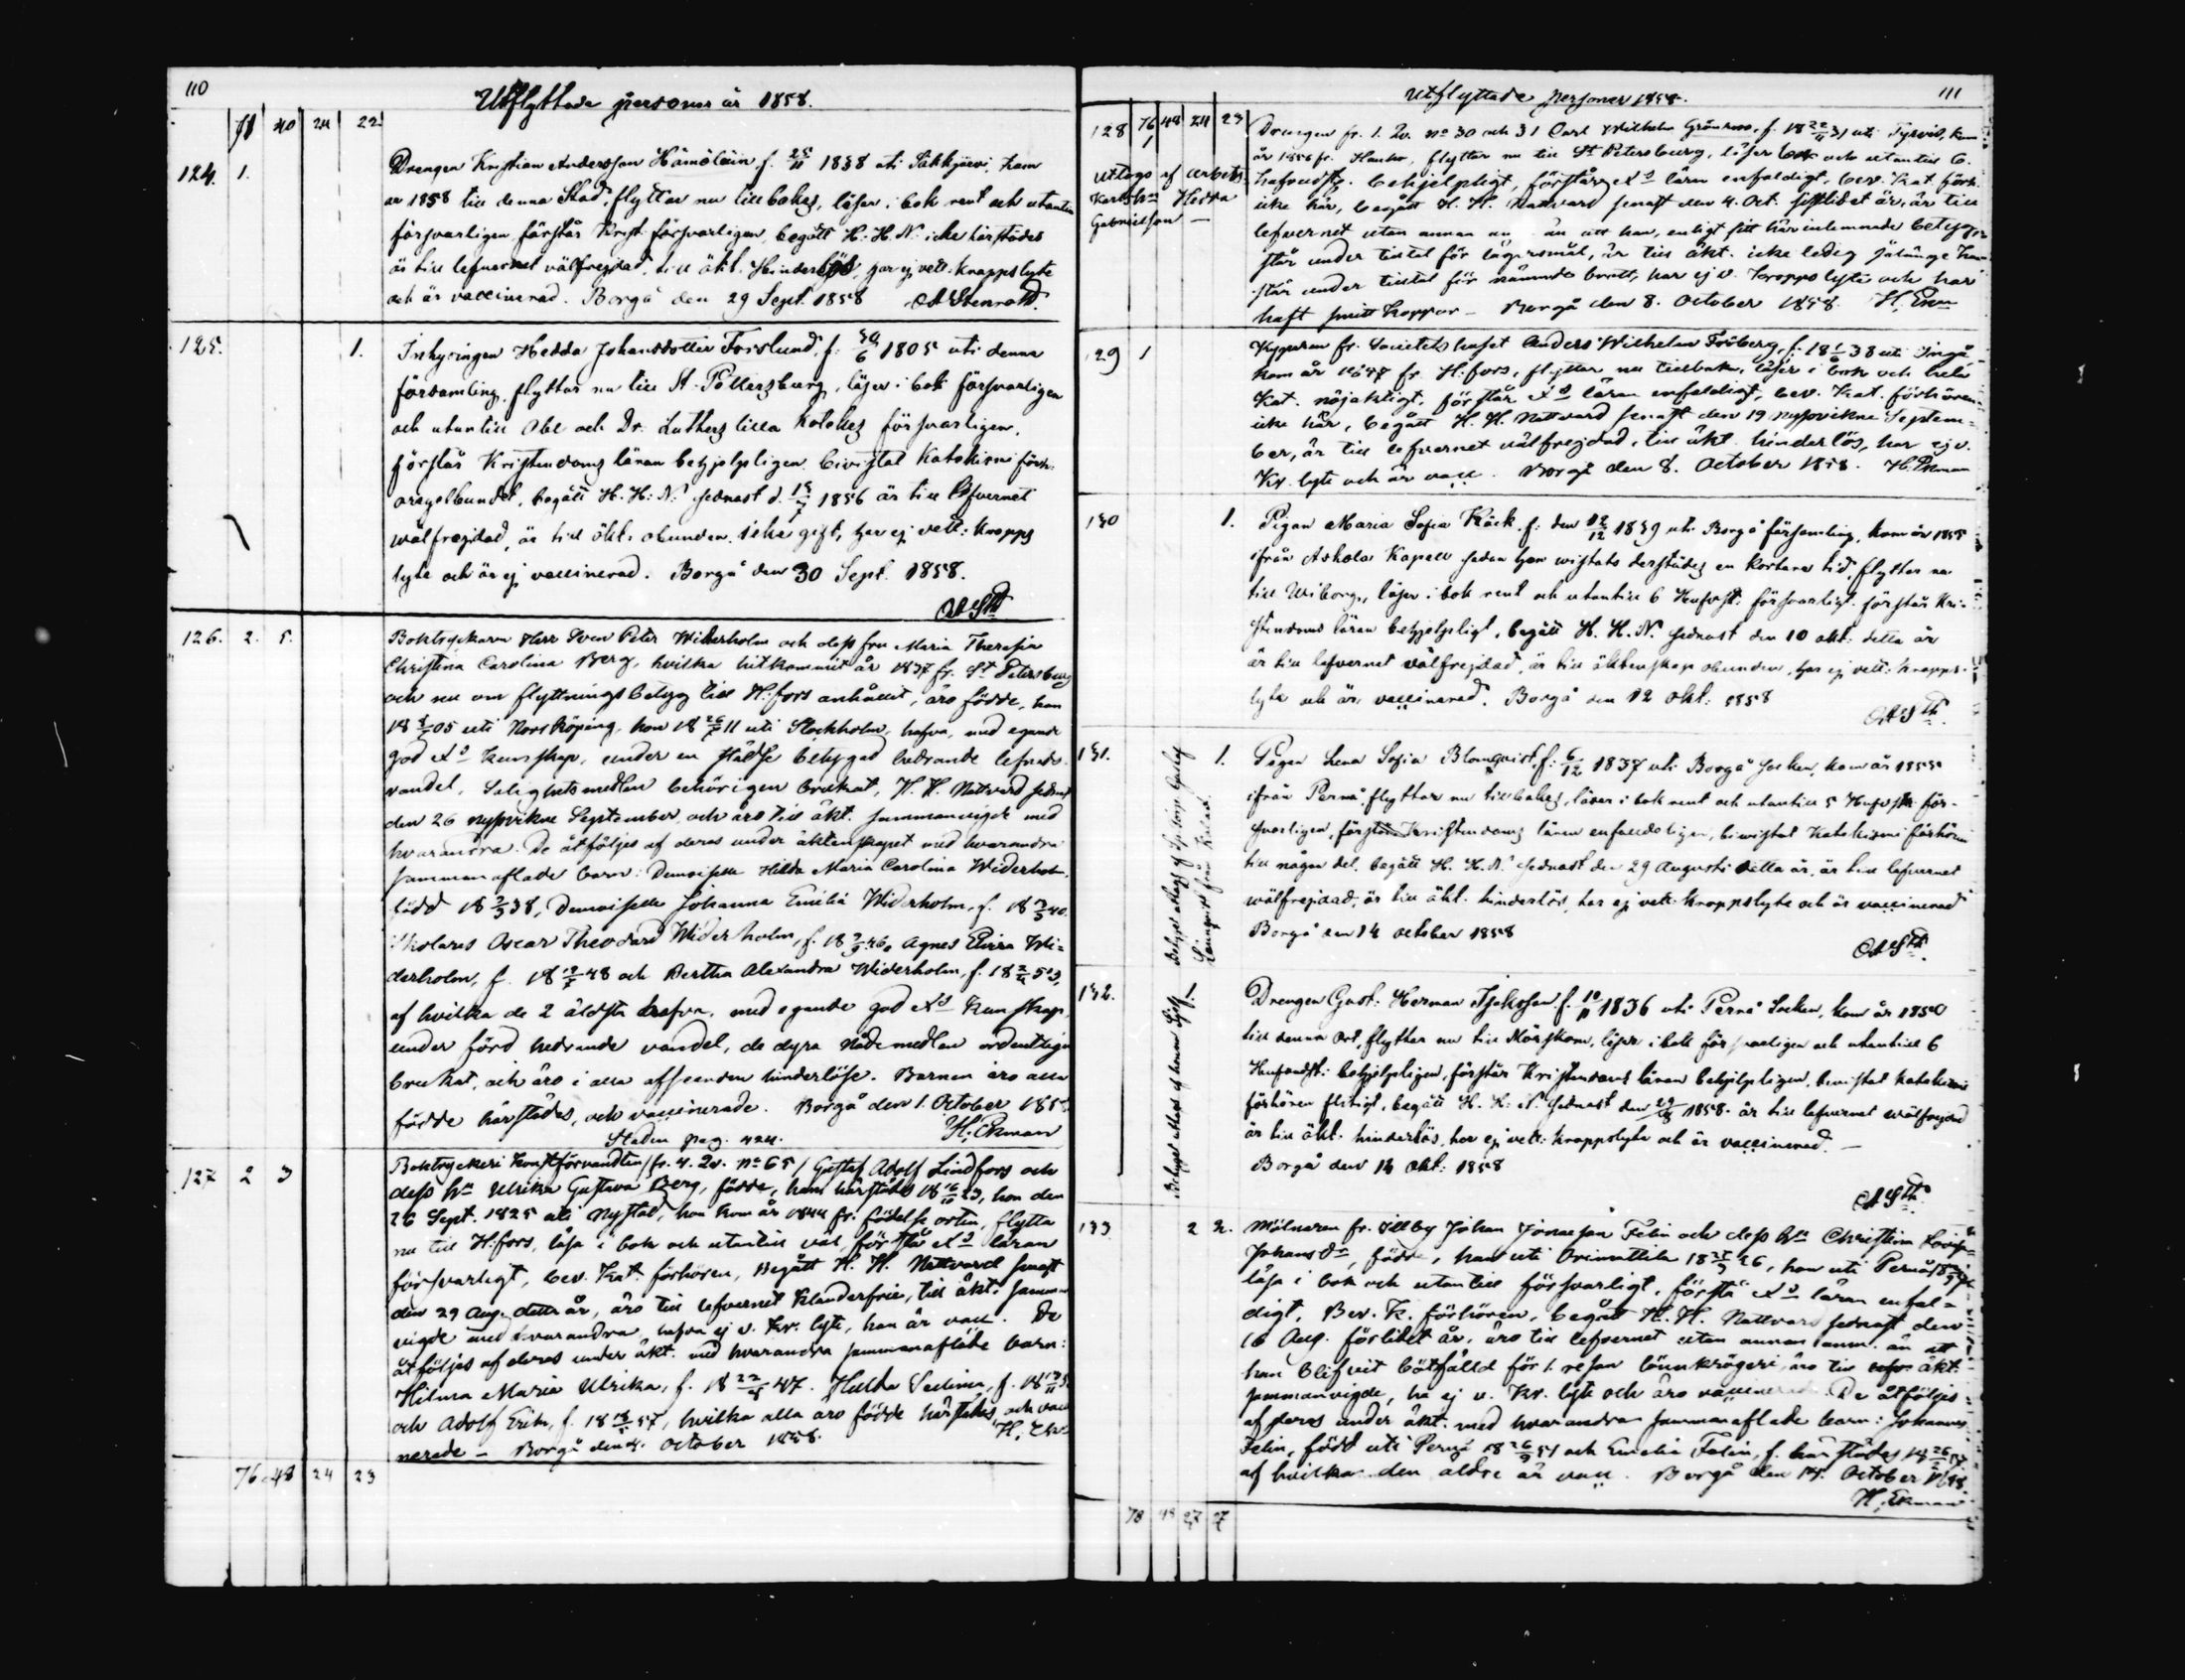 110
Utflyttade personer år 1858.
71 40 24 22
124. 1.
Drengen Kristian Andersson Hämäläin f. 25/11 1838 uti Säkkjärvi, kom
år 1858 till denna Stad, flyttar nu tillbakes, läser i bok rent och utantill
försvarligen förstår Krist. försvarligen, begått H: H. N. icke härstädes
är till lefvernet välfrejdad, till äkt. Hinderlös, har ej vett. kroppslyte
och är vaccinerad. Borgå den 29 Sept. 1858
125. 1.
Inhysingen Hedda Johansdotter Forslund, f. 30/6 1805 uti denna
församling, flyttar nu till St. Pettersburg, läser i bok försvarligen
och utantill Abc och Dr. Luthers lilla katekes försvarligen,
förstår Kristendoms läran behjelpligen, bivistat Katekismi förh.
oregelbundet, begått H. H: N. sednast d. 1856 är till lefvernet
wälfrejdad, är till äkt. obunden, icke gift, har ej vett: kropps
lyte och är ej vaccinerad. Borgå den 30 Sept. 1858.
126. 2. 5.
Boktryckaren Herr Sven Peter Widerholm och dess fru Maria Theresia
Christina Carolina Berg, hvilka hitkommit år 1837 fr. St Petersburg
och nu om flyttningsbetyg till H:fors anhållit, äro födde, han
05 uti Norrköping, hon 11 uti Stockholm, hafva, med egande
god kunskap, under en städse betygad hedrande lefnads-
vandel, Salighetsmedlen behörigen brukat, H. H. Nattvard sednast
den 26 nyssvikne September, och äro till äkt. sammanvigde med
hvarandra. De åtföljes af deras under äktenskapet med hvarandra
sammanaflade barn: Demoiselle Hilda Maria Carolina Widerholm,
född 38, Demoiselle Johanna Emilia Widerholm, f. 40,
Oscar Theodard Widerholm, f. 46, Agnes Elvira Wi-
derholm, f. 48 och Bertha Alexandra Widerholm, f. 53,
af hvilka de 2 äldsta hafva, med egande god kunskap,
under förd hedrande vandel, de dyra nådemedlen ordentligen
brukat, och äro i alla afseenden hinderlöse. Barnen äro alla
födde härstädes, och vaccinerade. Borgå den 1. October 1858
H. Ekman
Staden pag. 424.
127 2 3
Boktryckeri konstförvandten fr. 4. Qv. No 65 Gustaf Adolf Lindfors och
dess hu Ulrika Gustava Berg, födde, han härstädes 23, hon den
26 Sept. 1825 uti Nystad, hon kom år 1844 fr. födelse orten, flytta
nu till H:fors, läsa i bok och utantill väl, förstå läran
försvarligt, bev. Kat. förhören, Begått H. H. Nattvard senast
den 29 Aug. detta år, äro till lefvernet klanderfrie, till äkt. samman-
vigde med hvarandra, hafva ej v. Kr. lyte, han är vacc. De
åtföljas af deras under äkt. med hvarandra sammanaflade barn:
Hilma Maria Ulrika, f. 47. f.
och Adolf Erik, f. 57, hvilka alla äro födde härstädes och vacci
nerade - Borgå den 4. October 1858.
76 48 24 23
Utflyttade personer 1858.
111
128 76 48 24 23
1
Drengen fr. 1. Qv. No 30 och 31 Carl Wilhelm Grönroos, f. 31 uti Tyrvis, kom
år 1856 fr. flyttar nu till St Petersburg, läser bok och utantill 6.
hufvudst. behjelpligt, förstår läran enfaldigt, bev. Kat. förh.
icke här, begått H. H. Nattvard senast den 4. Oct. sistlidet år, är till
lefvernet utan annan än att han, enligt sitt här inlemnade betyg,
står under tilltal för lägersmål, är till äkt. icke ledig sålänge han
står under tilltal för nämnde brott, har ej v. kropps lyte och har
haft smittkoppor - Borgå den 8. October 1858. H. Ekm
Uttogs af arbets
Karls hu Hedda
Gabrielson -
129 1
Kyparen fr. Societetshuset Anders Wilhelm Fröberg, f. 38 uti Ingå
kom år 1847 fr. H:fors, flyttar nu tillbaka, läser i bok och hela
Kat. nöjaktigt, förstår läran enfaldigt, bev. Kat. förhören
icke här, begått H. H. Nattvard senast den 19 nyssvikne Septem-
ber, är till lefvernet välfrejdad, till äkt. hinderlös, har ej v.
Kr. lyte och är vacc. Borgå den 8. October 1858. H. Ekman
130 1.
Pigan Maria Sofia Käck f. den 12/12 1839 uti Borgå församling, kom år 1855
ifrån Askola Kapell sedan hon wistats derstädes en kortare tid, flyttar nu
till Wiborg, läser i bok rent och utantill 6 Hufvst. försvarligt, förstår Kri-
stendoms läran behjelpligt, begått H. H. N. sednast den 10 okt: detta år
är till lefvernet välfrejdad, är till äktenskap obunden, har ej vett: kropps-
lyte och är vaccinerad. Borgå den 12 Okt: 1858
131. 1.
Pigan Lena Sofia Blomqvist, f. 6/12 1837 uti Borgå Socken, kom år 1855
ifrån Pernå flyttar nu tillbakes, läser i bok rent och utantill 5 Hufvst. för-
svarligen, förstår Kristendoms läran enfaldeligen, bivistat Katekismi förhören
till någon del, begått H. H. N. sednast den 29 Augusti detta år, är till lefvernet
wälfrejdad, är till äkt. hinderlös, har ej vett. kroppslyte och är vaccinerad
Borgå den 14 October 1858
132. 1.
Betyget uttogs af honom sjelf.
Drengen Gust: Herman Isaksson f. 10/11 1836 uti Pernå Socken, kom år 1850
till denna Ort, flyttar nu till Mörskom, läser i bok försvarligen och utantill 6
Hufvudst: behjelpligen, förstår Kristendoms läran behjelpligen, bivistat katekismi
förhören flitigt, begått H. H: N. sednast den 29/8 1858. är till lefvernet wälfrejdad
är till äkt. hinderlös, har ej vett: kroppslyte och är vaccinerad. -
Borgå den 14 Okt: 1858
133. 2 2.
Mölnaren fr. Illby Johan Jonasson Felin och dess hu Christina
Johansdr, födde, han uti Orimattila 26, hon uti Pernå
läsa i bok och utantill försvarligt, förstå läran enfal-
digt, Bev. K. förhören, begått H. H. Nattvard sednast den
16 Aug. förlidet år, äro till lefvernet utan annan anm. än att
han blifvit bötfälld för 1. resan lönnkrögeri, äro till äkt.
sammanvigde, ha ej v. Kr. lyte och äro vaccinerade. De åtföljes
af deras under äkt. med hvarandra sammanaflade barn: Johannes
Felin, född uti Pernå 51 och Emelia Felin, f. härstädes
af hvilka den äldre är vacc. Borgå den 14. October 1858.
H. Ekman
78 49 27 27